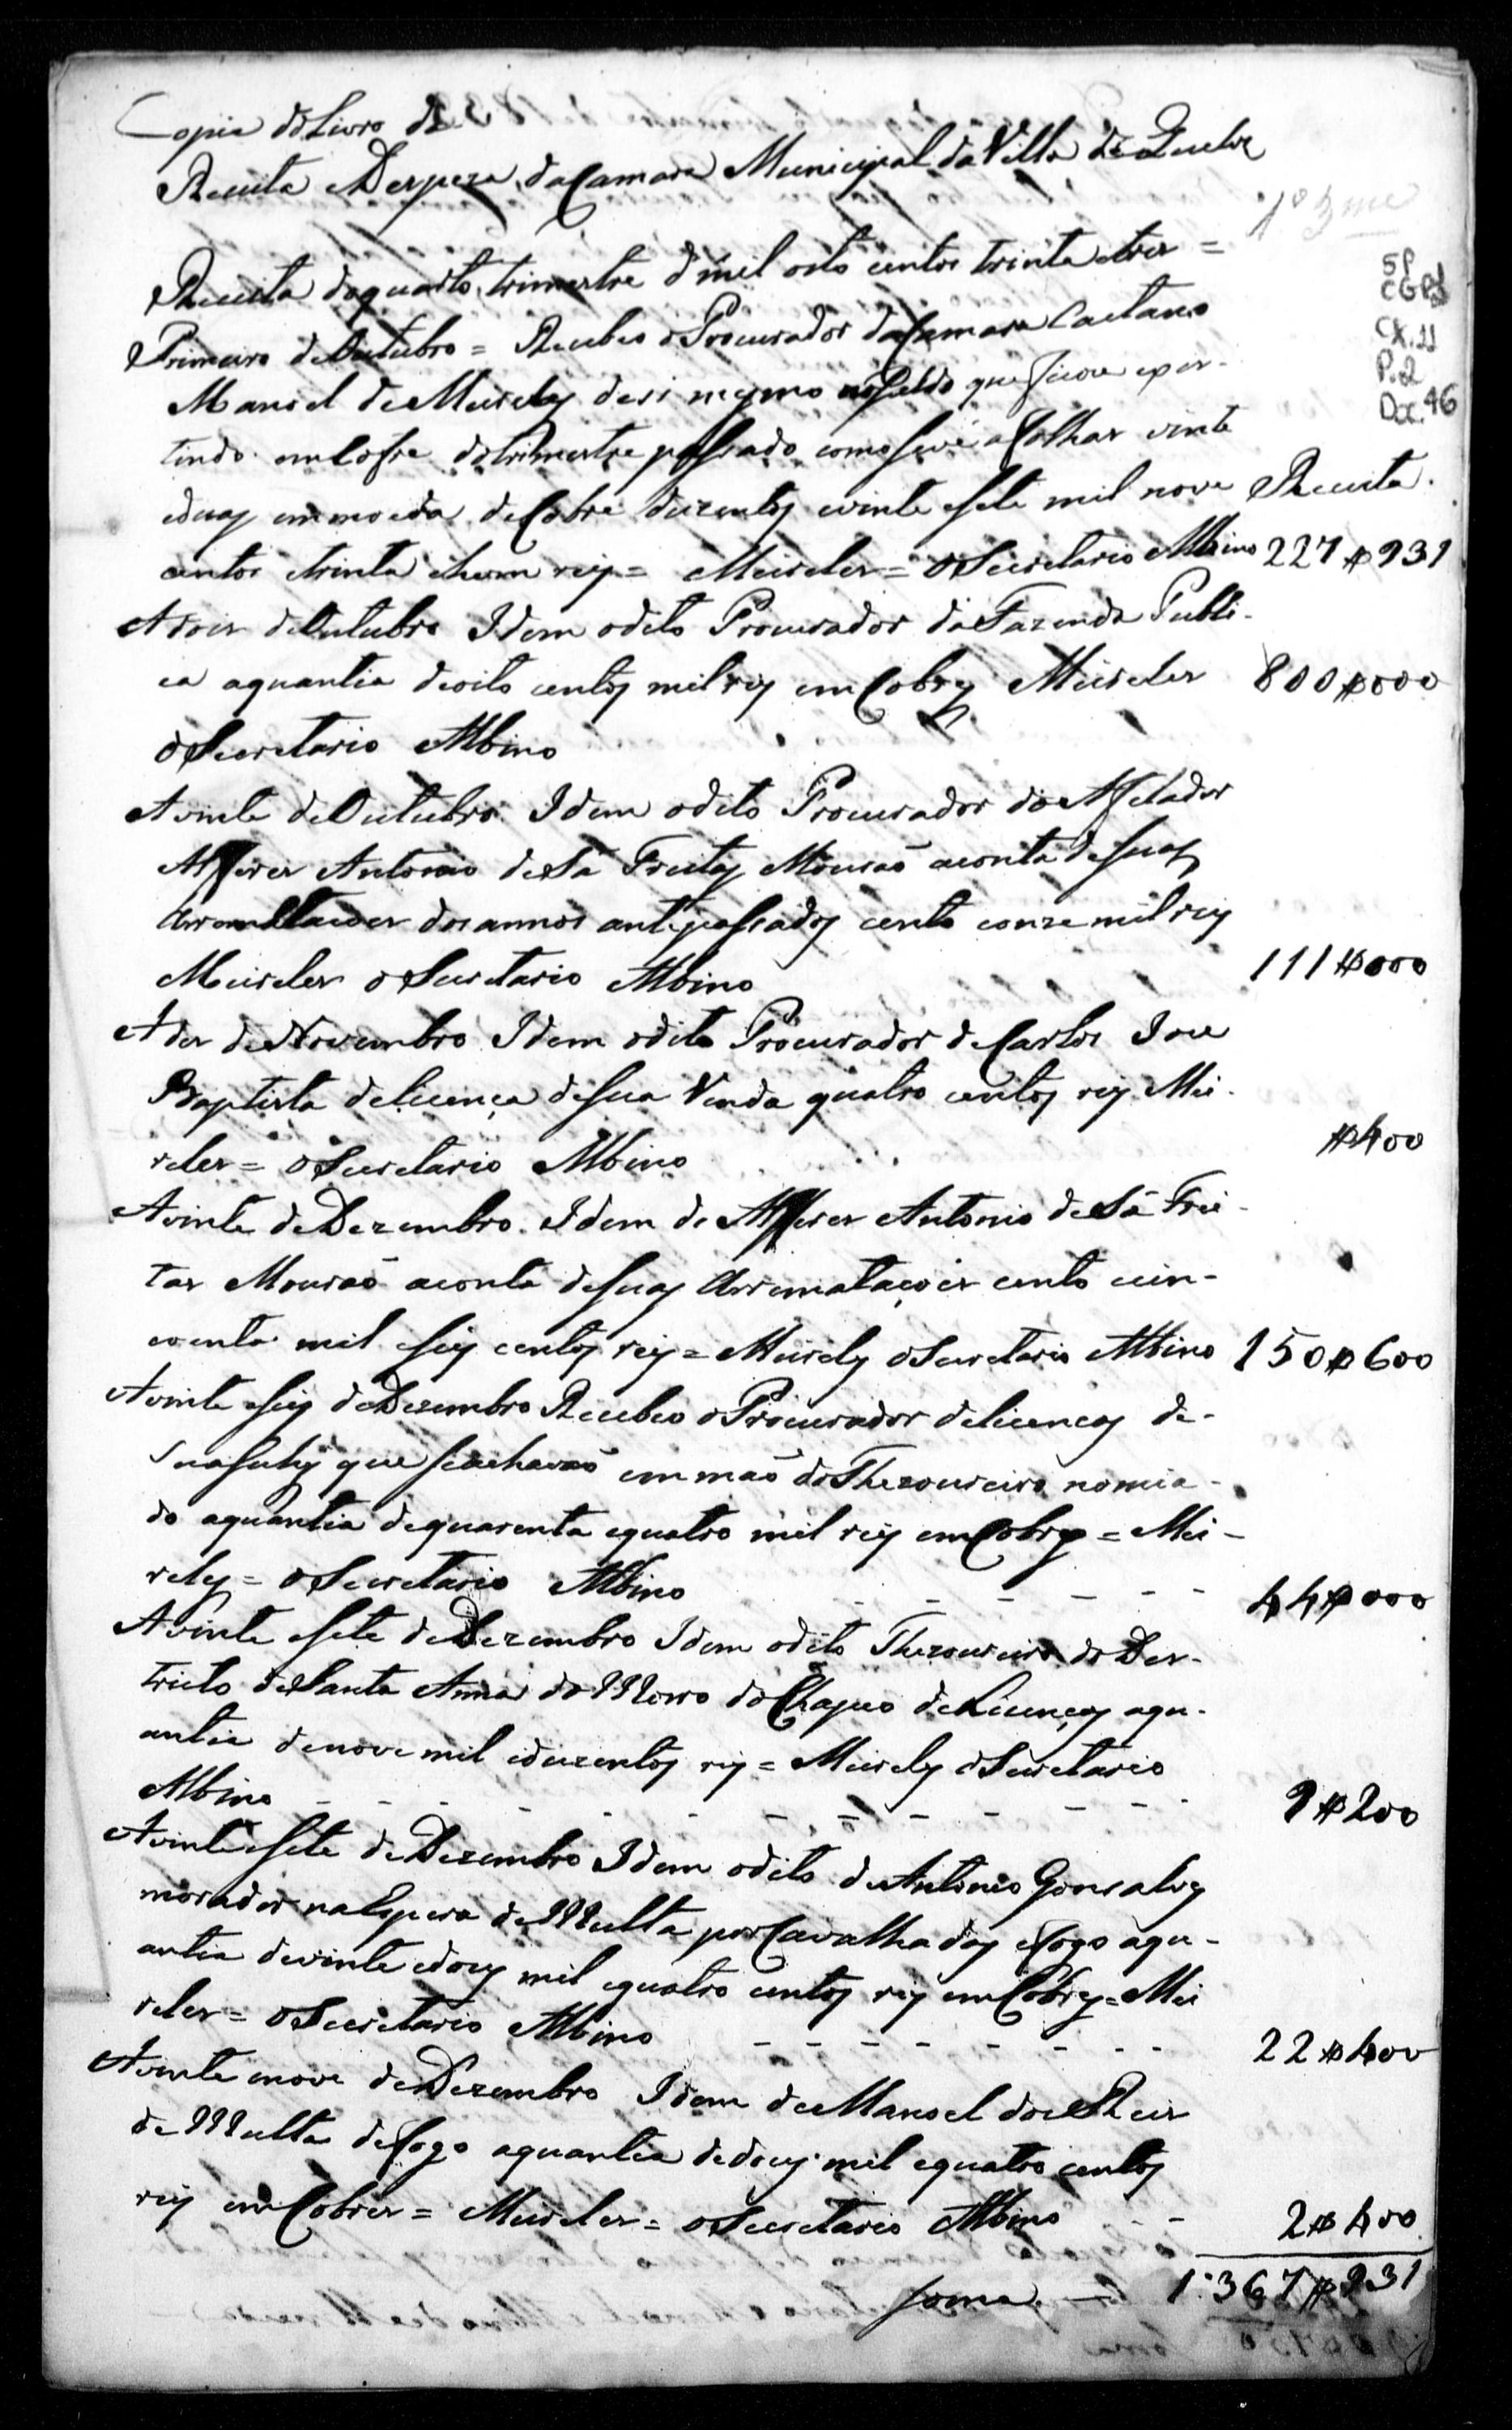 Copia do Livro de
Receita e Despeza da Camara Municipal da Villa de Queluz
1º 3me
SP
CGP1
CX.11
P.2
Doc.46
Receita do quarto trimestre de mil oito centos trinta e tres =
Primeiro de Outubro = Recebeo o Procurador da Camara Caetano
Manoel de Meireles de si mesmo no saldo que ficou exis-
tindo em Cofre do trimestre passado como se vê a folhas vinte
e duas em moeda de Cobre duzentos e vinte e sete mil nove Receita.
centos e trinta e hum reis = Meireles = o Secretario Albino 227$931
A dois de Outubro Idem o dito Procurador da Fazenda Publi-
ca a quantia de oito centos mil reis em Cobres Meireles 800$000
o Secretario Albino
A vinte de Outubro Idem o dito Procurador do Afelador
Alferes Antonio de Sá Freitas Mourão a conta de suas
Arremataçoes dos annos antepassados cento e onze mil reis
Meireles o Secretario Albino 111$000
A des de Novembro Idem o dito Procurador de Carlos Jose
Baptista de licença de sua Venda quatro centos reis Mei-
reles = o Secretario Albino $400
A vinte de Dezembro Idem do Alferes Antonio de Sá Frei-
tas Mourão a conta de suas Arremataçoes cento e cin-
coenta mil e seis centos reis = Meireles o Secretario Albino 150$600
A vinte e seis de Dezembro Recebeo o Procurador de licenças de
Suasuhy que se achavão em mão do Thezoureiro nomia-
do a quantia de quarenta e quatro mil reis em Cobres = Mei-
reles = o Secretario Albino - - - - - 44$000
A vinte e sete de Dezembro Idem o dito Thezoureiro do Des-
tricto de Santa Anna do Morro do Chapeo de Licenças a qu-
antia de nove mil e duzentos reis = Meireles o Secretario
Albino - - - - - - - - - - - - 9$200
A vinte e sete de Dezembro Idem o dito de Antonio Gonsalves
morador na Espera de Multa por Cavalhadas e fogo a qu-
antia de vinte e dous mil e quatro centos reis em Cobres = Mei
reles = o Secretario Albino - - - - - - - - 22$400
A vinte e nove de Dezembro Idem de Manoel dos Reis
de Multa de fogo a quantia de dous mil e quatro centos
reis em Cobres = Meireles = o Secretario Albino - - 2$400
Soma — 1:367$931